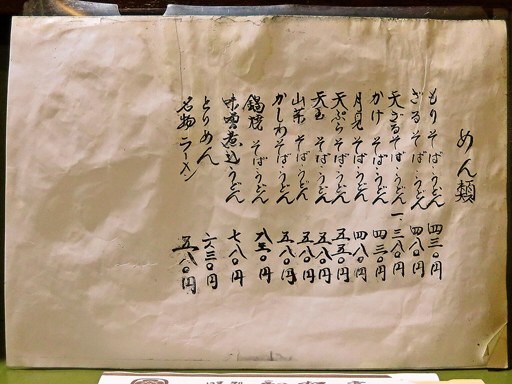 めん類
もりそば・うどん 四三〇円
ざるそば・うどん 四八〇円
天ざるそば・うどん 一、三八〇円
かけ そば・うどん 四三〇円
月見 そば・うどん 四八〇円
天ぷら そば・うどん 五五〇円
天玉 そば・うどん 五八〇円
山菜 そば・うどん 五八〇円
かしわ そば・うどん 五八〇円
鍋焼 そば・うどん 八三〇円
味噌煮込うどん 七八〇円
とりめん 六三〇円
名物ラーメン 五八〇円